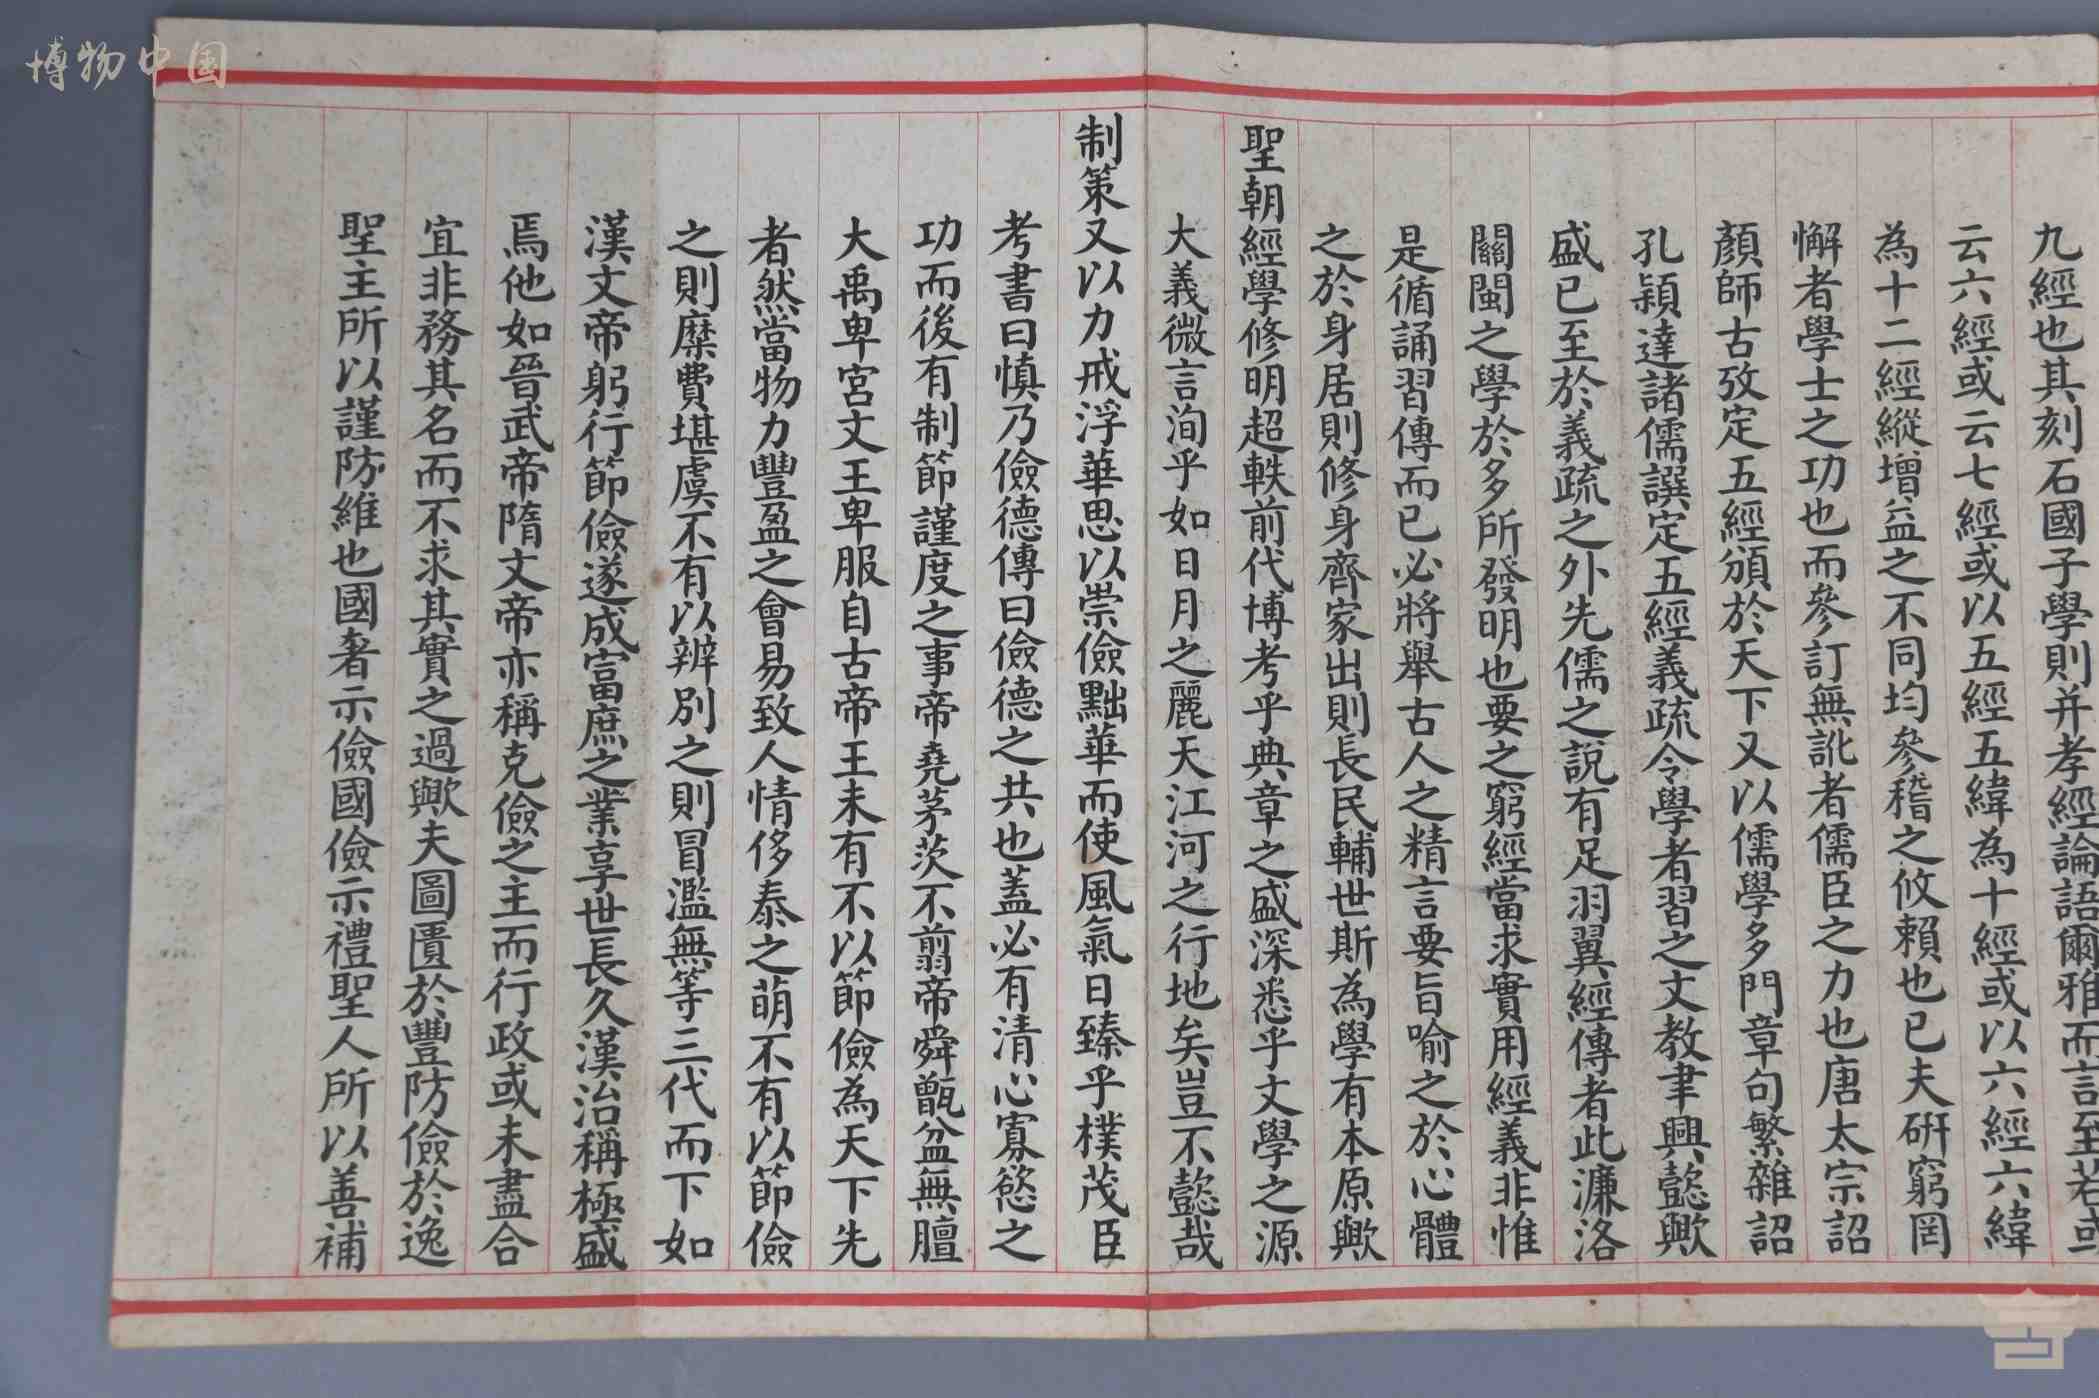 博物中国
九經也其刻石國子學則并孝經論語爾雅而言至若或
云六經或云七經或以五經五緯為十經或以六經六緯
為十二經縱增益之不同均參稽之攸賴也已夫研窮罔
懈者學士之功也而參訂無訛者儒臣之力也唐太宗詔
顏師古攷定五經頒於天下又以儒學多門章句繁雜詔
孔穎達諸儒譔定五經義疏令學者習之文教聿興懿歟
盛已至於義疏之外先儒之說有足羽翼經傳者此濂洛
關閩之學於多所發明也要之窮經當求實用經義非惟
是循誦習傳而已必將舉古人之精言要旨喻之於心體
之於身居則修身齊家出則長民輔世斯為學有本原歟
聖朝經學修明超軼前代博考乎典章之盛深悉乎文學之源
大義微言洵乎如日月之麗天江河之行地矣豈不懿哉
制策又以力戒浮華思以崇儉黜華而使風氣日臻乎樸茂臣
考書曰慎乃儉德傳曰儉德之共也蓋必有清心寡慾之
功而後有制節謹度之事帝堯茅茨不翦帝舜甑盆無膻
大禹卑宮文王卑服自古帝王未有不以節儉為天下先
者然當物力豐盈之會易致人情侈泰之萌不有以節儉
之則糜費堪虞不有以辨別之則冒濫無等三代而下如
漢文帝躬行節儉遂成富庶之業享世長久漢治稱極盛
焉他如晉武帝隋文帝亦稱克儉之主而行政或未盡合
宜非務其名而不求其實之過歟夫圖匱於豐防儉於逸
聖主所以謹防維也國奢示儉國儉示禮聖人所以善補